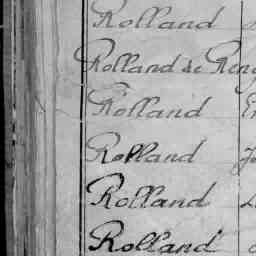 Rolland
Rolland de Reng
Rolland
Rolland
Rolland
Rolland